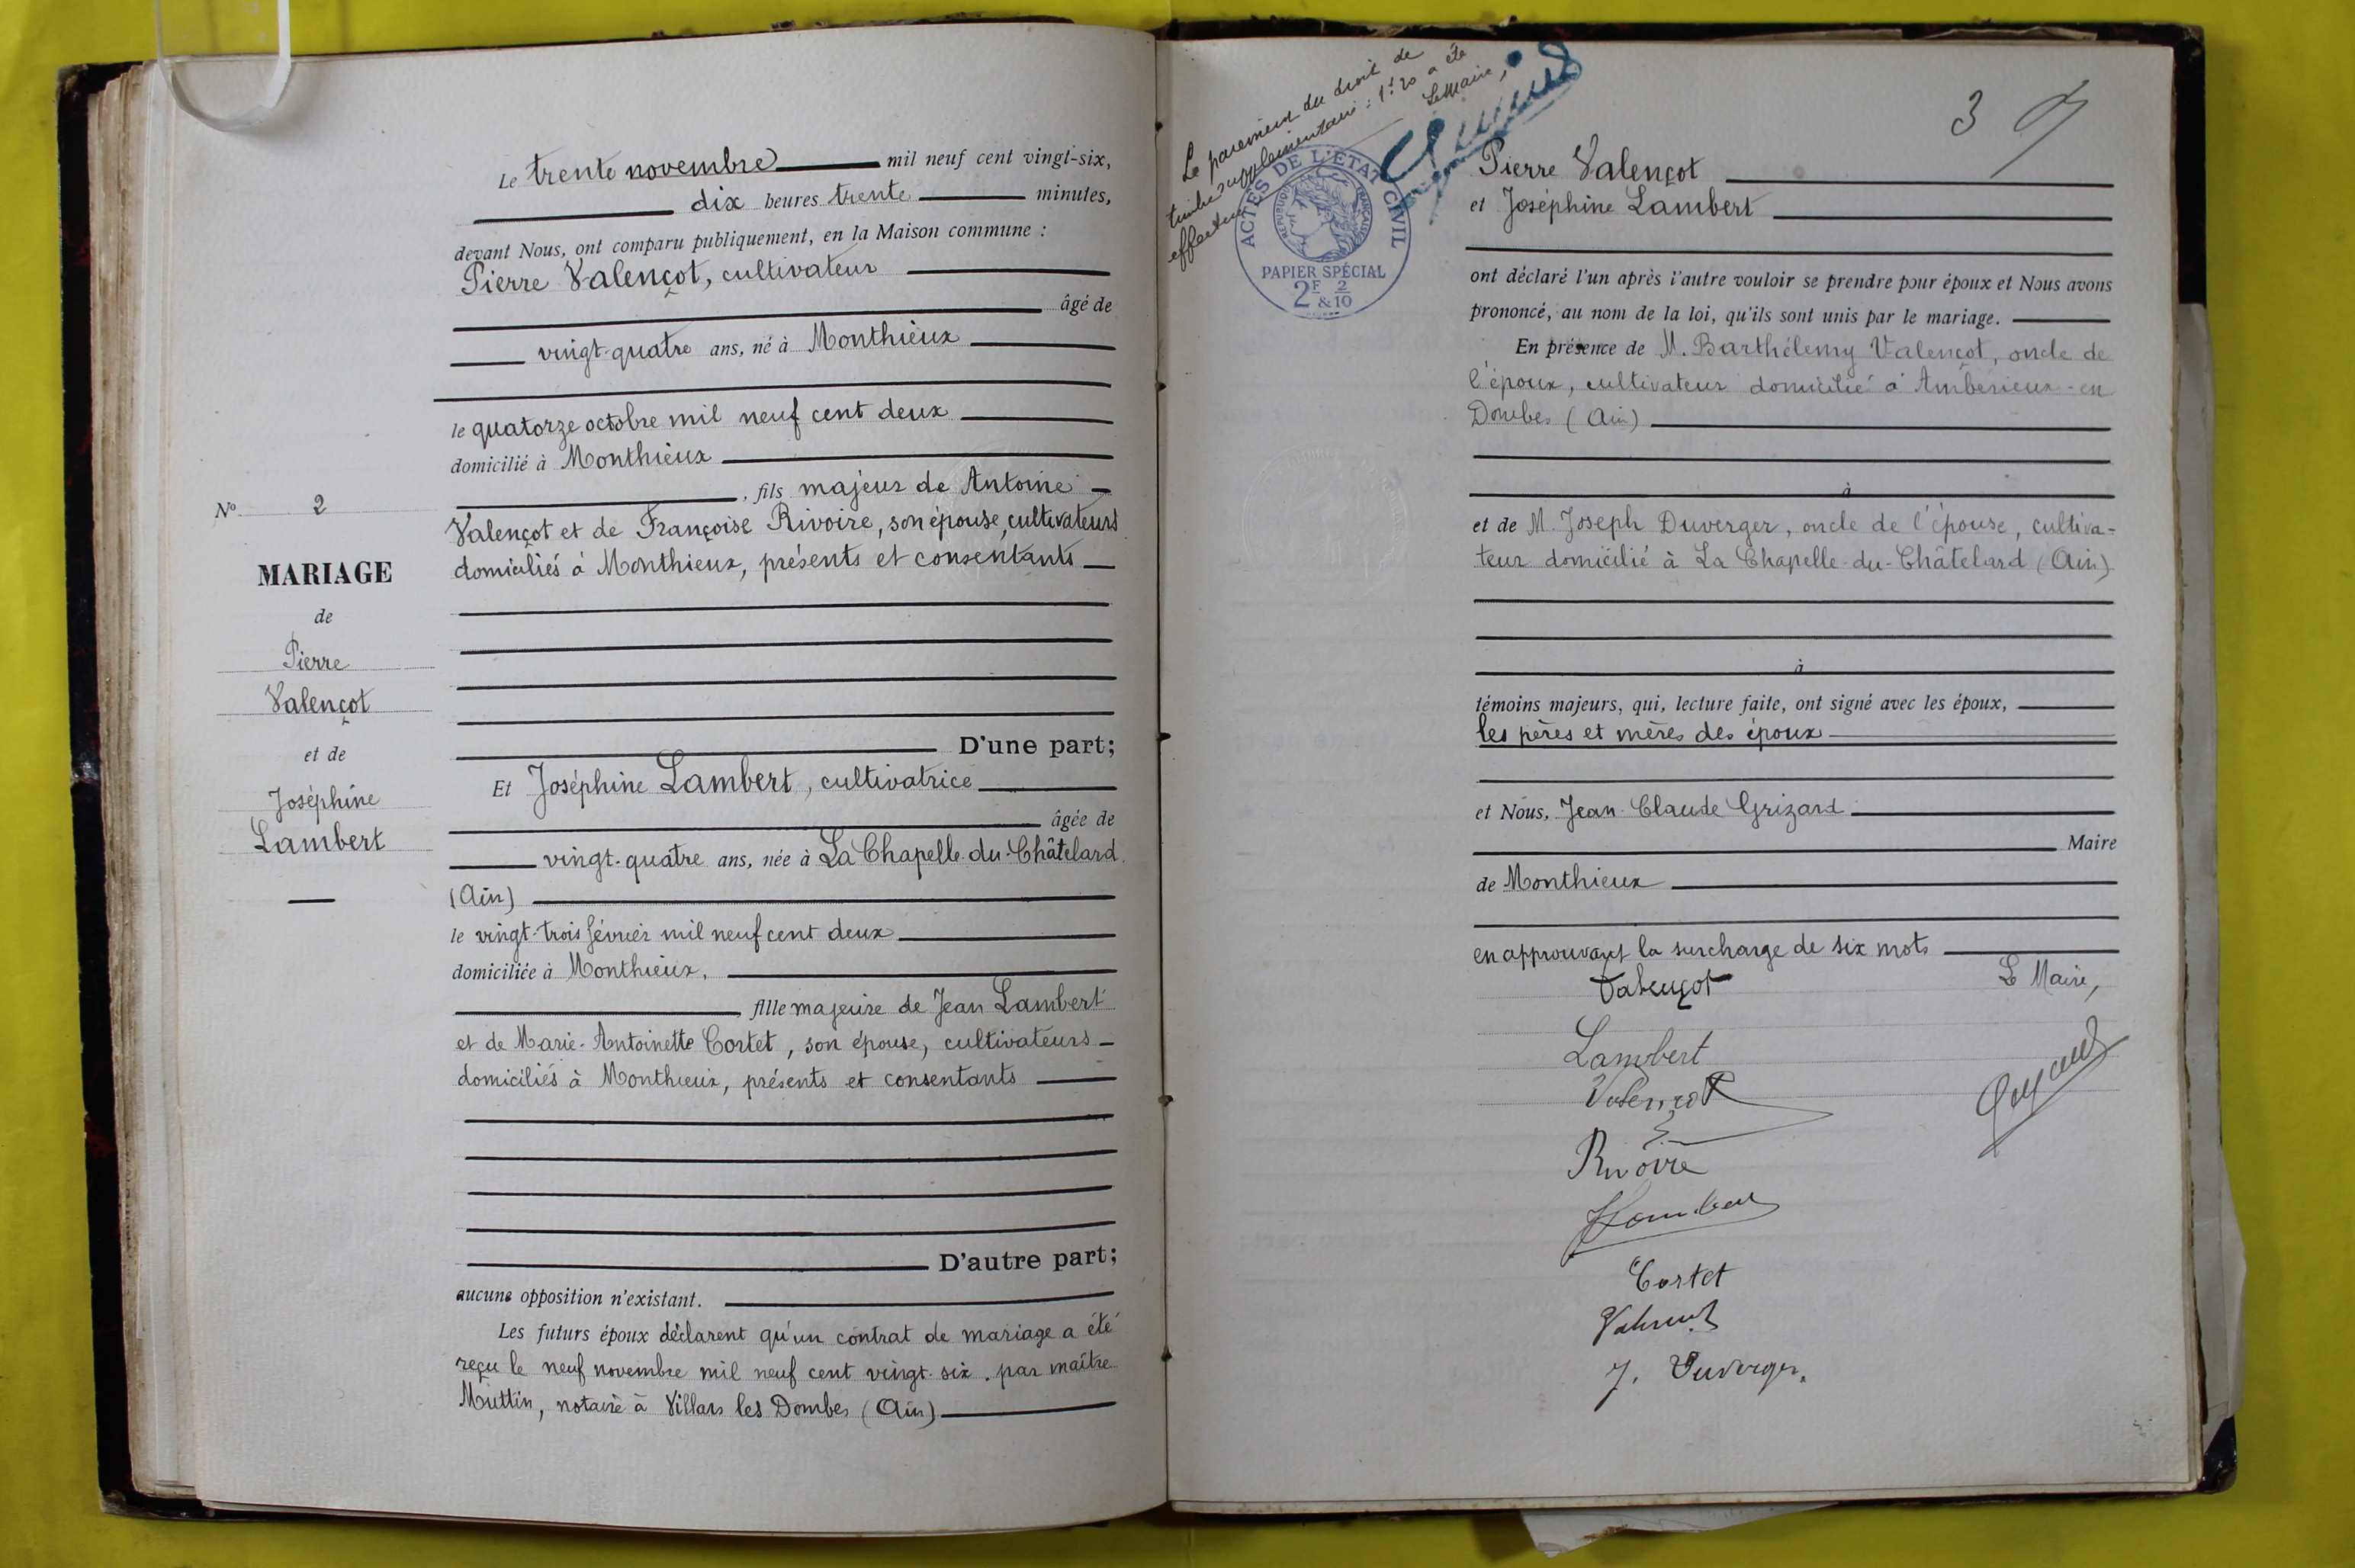 Le trente novembre mil neuf cent vingt-six,
dix heures trente minutes,
devant Nous, ont comparu publiquement, en la Maison commune :
Pierre Valençot, cultivateur
âgé de
vingt-quatre ans, né à Monthieux
le quatorze octobre mil neuf cent deux
domicilié à Monthieux
, fils majeur de Antoine
Valençot et de Françoise Rivoire, son épouse, cultivateurs
domiciliés à Monthieux, présents et consentants
D'une part;
Et Joséphine Lambert, cultivatrice
âgée de
vingt-quatre ans, née à La Chapelle-du-Châtelard
(Ain)
le vingt-trois février mil neuf cent deux
domiciliée à Monthieux,
fille majeure de Jean Lambert
et de Marie-Antoinette Cortet, son épouse, cultivateurs
domiciliés à Monthieux, présents et consentants
D'autre part;
aucune opposition n'existant.
Les futurs époux déclarent qu'un contrat de mariage a été
reçu le neuf novembre mil neuf cent vingt-six, par maître
Muttin, notaire à Villars les Dombes (Ain)
No 2
MARIAGE
de
Pierre
Valençot
et de
Joséphine
Lambert
Le paiement du droit de
timbre supplémentaire : 1f20 a été
effectué Le Maire,
ACTES DE L'ÉTAT CIVIL
RÉPUBLIQUE FRANÇAISE
PAPIER SPÉCIAL
2F & 2/10
3
Pierre Valençot
et Joséphine Lambert
ont déclaré l'un après l'autre vouloir se prendre pour époux et Nous avons
prononcé, au nom de la loi, qu'ils sont unis par le mariage.
En présence de M. Barthélemy Valençot, oncle de
l'époux, cultivateur domicilié à Ambérieux-en
Dombes (Ain)
à
et de M. Joseph Duverger, oncle de l'épouse, cultiva-
teur domicilié à La Chapelle-du-Châtelard (Ain)
à
témoins majeurs, qui, lecture faite, ont signé avec les époux,
les pères et mères des époux
et Nous, Jean-Claude Grizard
Maire
de Monthieux
en approuvant la surcharge de six mots
Valençot
Le Maire,
Lambert
Valençot
Rivoire
Lambert
Cortet
Valençot
J. Duverger.